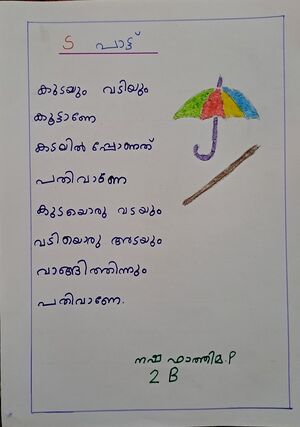 ട പാട്ട്
കുടയും വടിയും
കൂട്ടാണേ
കടയിൽ പോണത്
പതിവാണേ
കുടയൊരു വടയും
വടിയൊരു അടയും
വാങ്ങിത്തിന്നും
പതിവാണേ.
നഷ ഫാത്തിമ.P
2 B